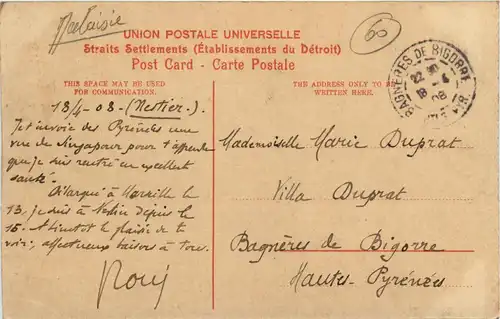 Malaisie
60
UNION POSTALE UNIVERSELLE
Straits Settlements (Établissements du Détroit)
Post Card - Carte Postale
THIS SPACE MAY BE USED
FOR COMMUNICATION.
THE ADDRESS ONLY TO BE
WRITTEN HERE.
BAGNÈRES DE BIGORRE
18/4-08-(Nestier).
Je t'envoie des Pyrénées une
vue de Singapour pour t'apprendre
que je suis rentré en excellent
santé.
Débarqué à Marseille le
13, je suis à Nestier depuis le
15. A bientôt le plaisir de te
voir, affectueux baisers à tous.
Mademoiselle Marie Duprat
Villa Duprat
Bagnères de Bigorre
Hautes-Pyrénées